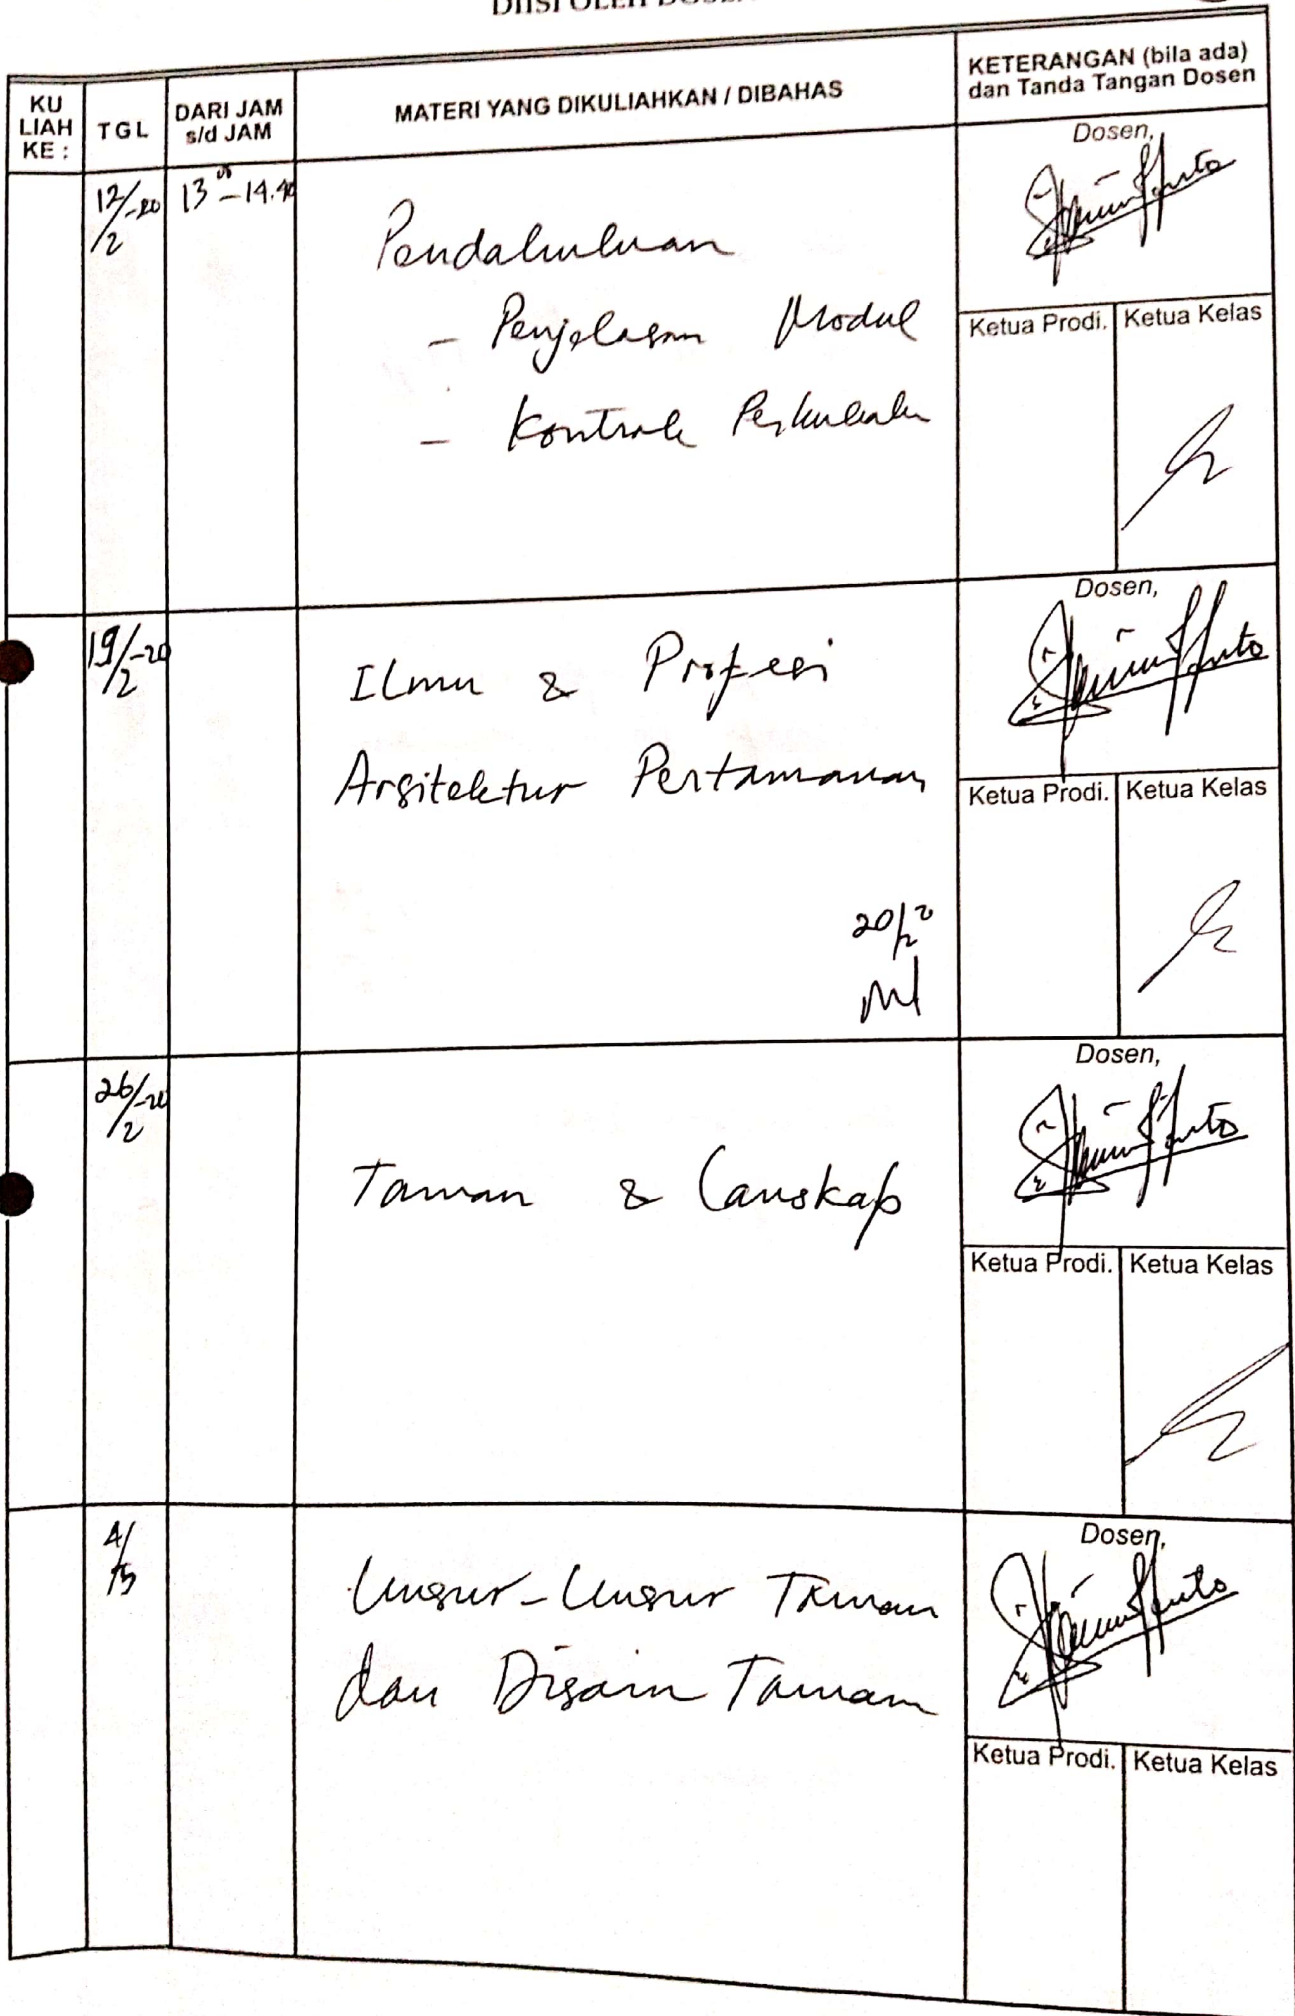 DIISI OLEH
KU LIAH KE :
TGL
DARI JAM s/d JAM
MATERI YANG DIKULIAHKAN / DIBAHAS
KETERANGAN (bila ada) dan Tanda Tangan Dosen
12/2-20
13 00 - 14.40
Pendahuluan
- Penjelasan Modul
- Kontrak Perkuliahan
Dosen,
Ketua Prodi.
Ketua Kelas
19/2-20
Ilmu & Profesi
Arsitektur Pertamanan
20/2 20
Dosen,
Ketua Prodi.
Ketua Kelas
26/2-20
Taman & Lanskap
Dosen,
Ketua Prodi.
Ketua Kelas
4/3
Unsur-Unsur Taman
dan Disain Taman
Dosen,
Ketua Prodi.
Ketua Kelas